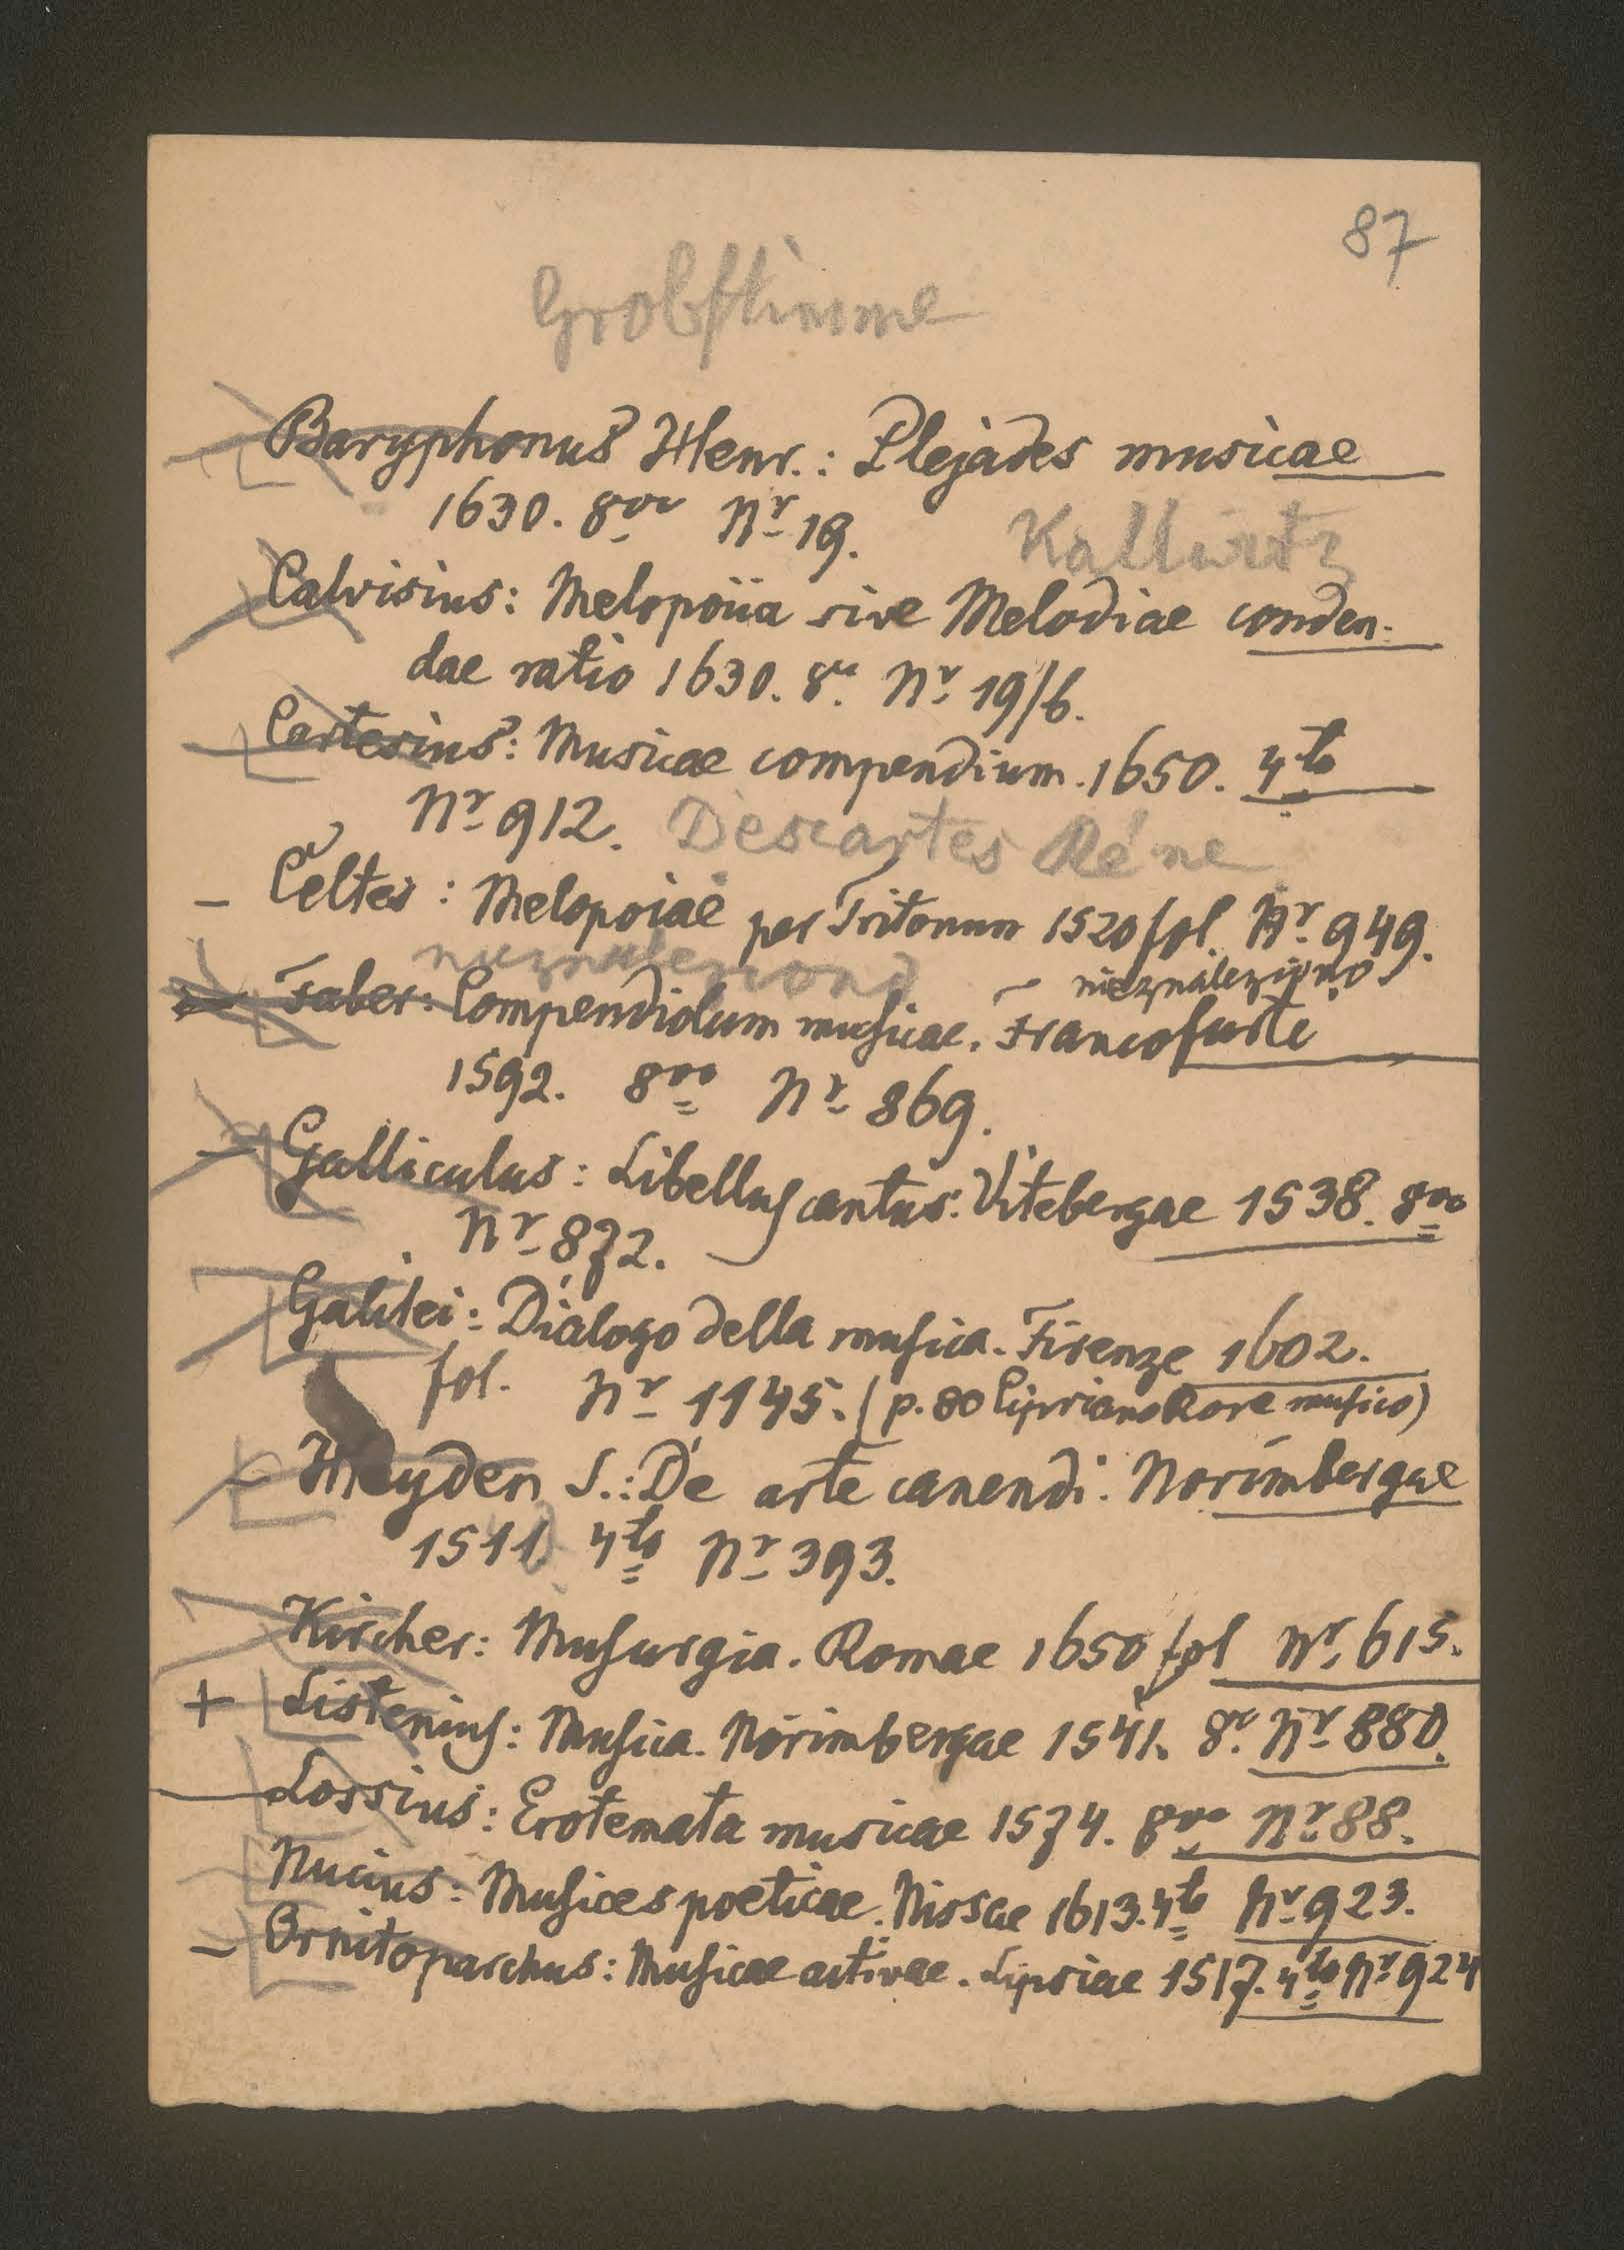 87
Grobstimme
Baryphonus Henr.: Plejades musicae
1630. 8vo Nr 19.
Kallwitz
Calvisius: Melopoiia sive Melodiae conden-
dae ratio 1630. 8o. Nr 19/b.
Cartesius: Musicae compendium. 1650. 4to
Nr 912. Descartes Réne
- Celtes: Melopoiae per Tritonum 1520 fol. Nr 949.
nieznaleziono
- nieznaleziono
Faber: Compendiolum musicae. Francofurte
1592. 8vo Nr 869.
- Galliculus: Libellus cantus. Vitebergae 1538. 8vo
Nr 872.
Galilei: Dialogo della musica. Firenze 1602.
fol. Nr 1145. (p. 80 Cipriano Rore musico)
- Heyden S.: De arte canendi. Norimbergae
1511 4to Nr 393.
Kircher: Musurgia. Romae 1650 fol Nr. 615.
+ Listenius: Musica. Norimbergae 1541. 8o. Nr 880.
- Lossius: Erotemata musicae 1574. 8vo Nr 88.
Nucius: Musices poeticae. Nissae 1613. 4to Nr 923.
- Ornitoparchus: Musicae activae. Lipsiae 1517. 4to Nr 924